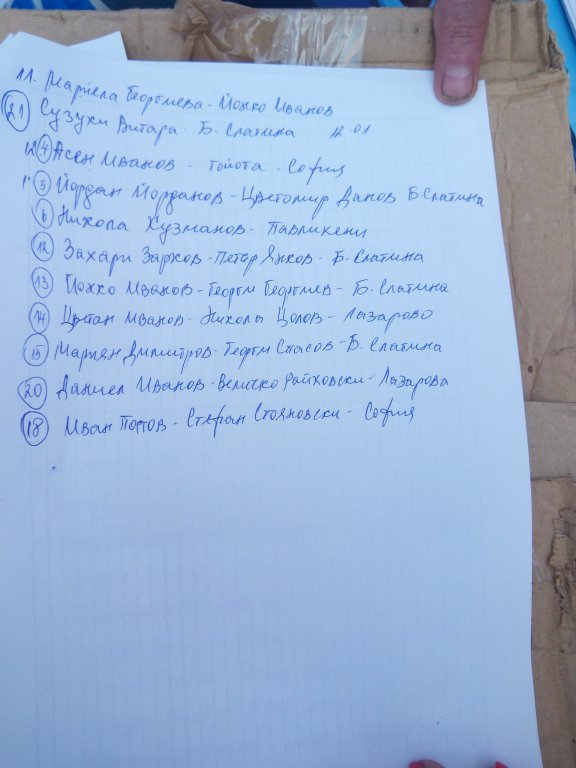 11. Мариела Георгиева - Йонко Иванов
21 Сузуки Витара - Б. Слатина 12 01
12 4 Асен Иванов - Тойота - София
5 Йордан Йорданов - Цветомир Данов Б Слатина
6 Никола Кузманов - Павликени
12 Захари Зарков - Петър Янков - Б. Слатина
13 Йонко Иванов - Георги Георгиев - Б. Слатина
14 Цветан Иванов - Никола Цолов - Лазарово
15 Мариян Димитров - Георги Спасов - Б. Слатина
20 Даниел Иванов - Величко Райховски - Лазарова
18 Иван Попов - Стефан Стояновски - София